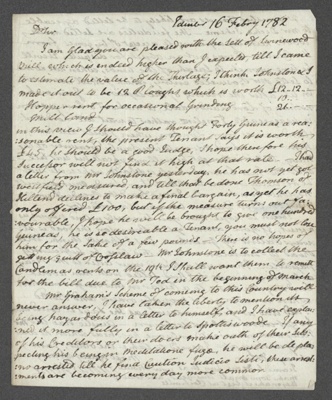 Edinbr 16 Febry 1782
Dr Sir
I am Glad you are pleased with the Sett of
Mill, which is ended higher than I expected, till I came
to estimate the value of the Thirlage; I think Johnstone & I
made it out to be 12 Ploughs which is worth £12.12.
Hopper rent for occasional Grinding
Mill Land
in this view I should have thought Forty Guineas a rea-
sonable rent, the present Tenant says it is worth
£45. & should be a good Judge, I hope therefore his
Successor will not find it high at that rate. I had
a letter from Mr Johnstone yesterday, he has not yet got
measured, and till that be done Thomson of
declines to make a final bargain, as yet he has
only offered but if the measure turns out fa-
vourable, I hope he will be brought to give one hundred
Guineas, he is so desireable a Tenant, you must not lose
him for the Sake of a few pounds – There is no hopes of
getting quit of Mr Johnstone is to collect the
Candlemas rents on the 19th I shall want them to remitt
for the bill due to Mr Tod in the beginning of March
Mr Graham's scheme of coming to this Country will
never answer, I have taken the liberty to mention its
being hazardous in a letter to himself, and I have explain-
ed it more fully in a letter to Spotiswoode – If any
of his Creditors or their doers make oath of their Sus-
pecting his being in meditatione fugæ, he will be de-
arrested till he find Caution Judicio Sisti, these arrest-
ments are becoming every day more common